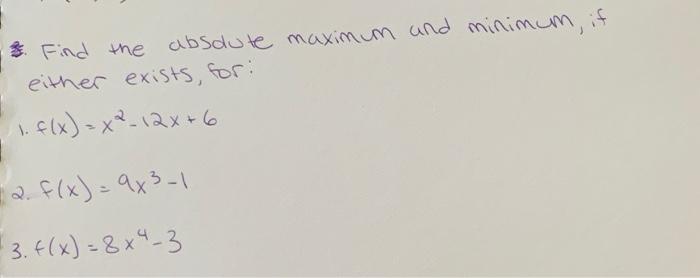 Find the absolute maximum and minimum, if
either exists, for:
1. f(x) = x² - 12x + 6
2. f(x) = 9x³ - 1
3. f(x) = 8x⁴ - 3